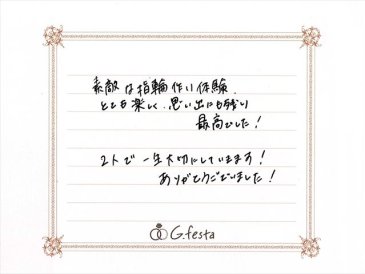 素敵な指輪作り体験、
とても楽しく、思い出にも残り
最高でした！
2人で一生大切にしていきます！
ありがとうございました！
G.festa